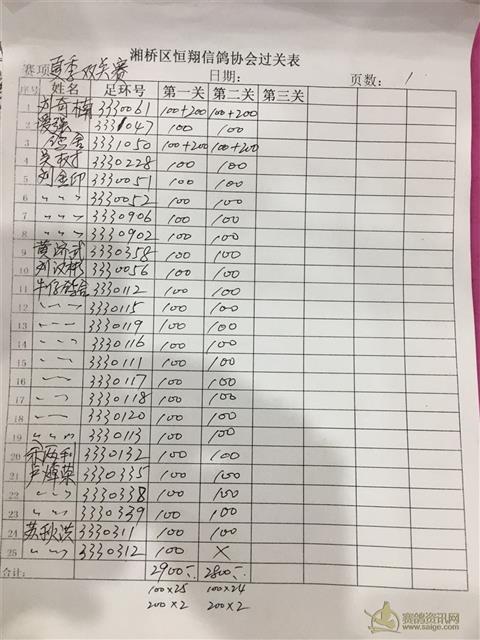 湘桥区恒翔信鸽协会过关表
赛项 夏季双关赛 日期: 页数: 1
序号 姓名 足环号 第一关 第二关 第三关
1 刘奇楠 3330061 100+200 100+200
2 3331047 100 100
3 3331050 100+200 100+200
4 3330228 100 100
5 刘金印 3330051 100 100
6 〃 〃 〃 3330052 100 100
7 〃 〃 〃 3330906 100 100
8 〃 〃 〃 3330902 100 100
9 3330358 100 100
10 刘汉彬 3330056 100 100
11 3330112 100 100
12 3330115 100 100
13 3330119 100 100
14 3330116 100 100
15 3330111 100 100
16 3330117 100 100
17 3330118 100 100
18 3330120 100 100
19 〃 〃 〃 3330113 100 100
20 3330132 100 100
21 3330335 100 100
22 〃 〃 3330338 100 100
23 〃 〃 3330339 100 100
24 苏秋洪 3330311 100 100
25 〃 〃 〃 3330312 100 ×
合计: 2900 2800
100×25 100×24
200×2 200×2
赛鸽资讯网
www.saige.com